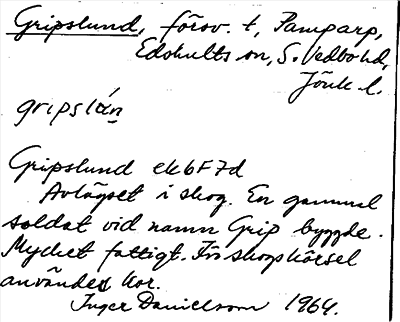 Gripslund, förov. t, Pamparp,
Edshults sn, S. Vedbo hd,
Jönk l.
gripslán
Gripslund ek 6F7d
Avlägset i skog. En gammal
soldat vid namn Grip byggde.
Mycket fattigt. För skogskörsel
användes kor.
Inger Danielsson 1964.